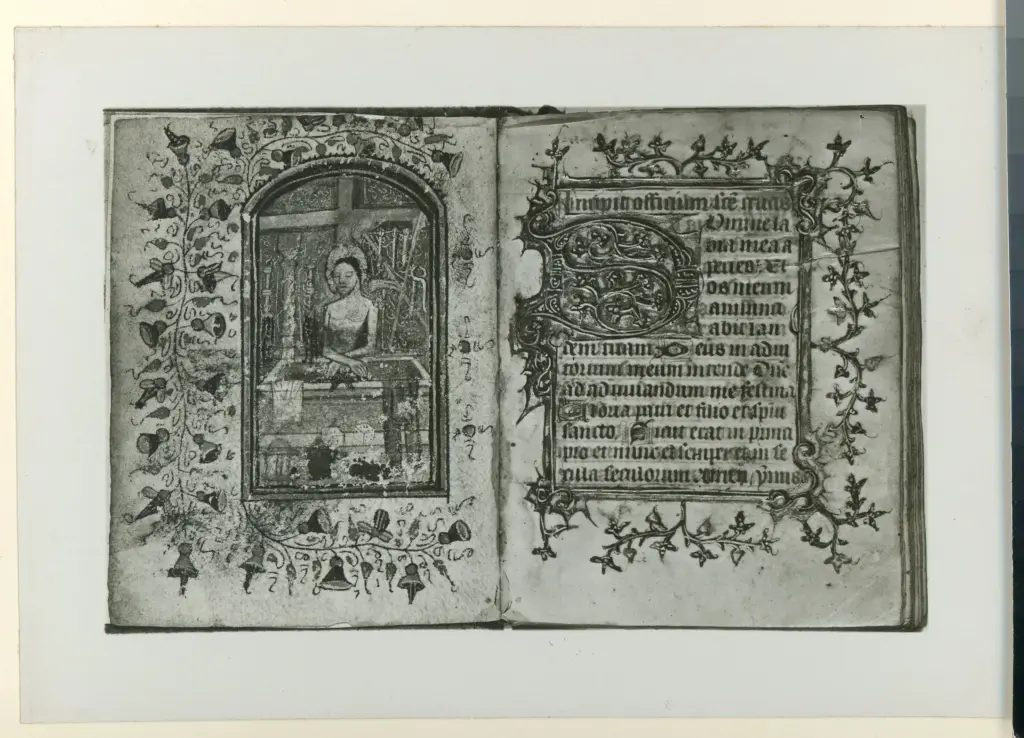 Incipit officium sc̄e crucis
Domine la
bia mea a
peries. Et
os meum
anunci
abit lau
dem tuam. Deus in adiu
torium meum intende Dne
ad adiuuandum me festina
Gloria patri et filio et spiri
sancto. Sicut erat in princi
pio et nunc et semper et in se
cula seculorum amen